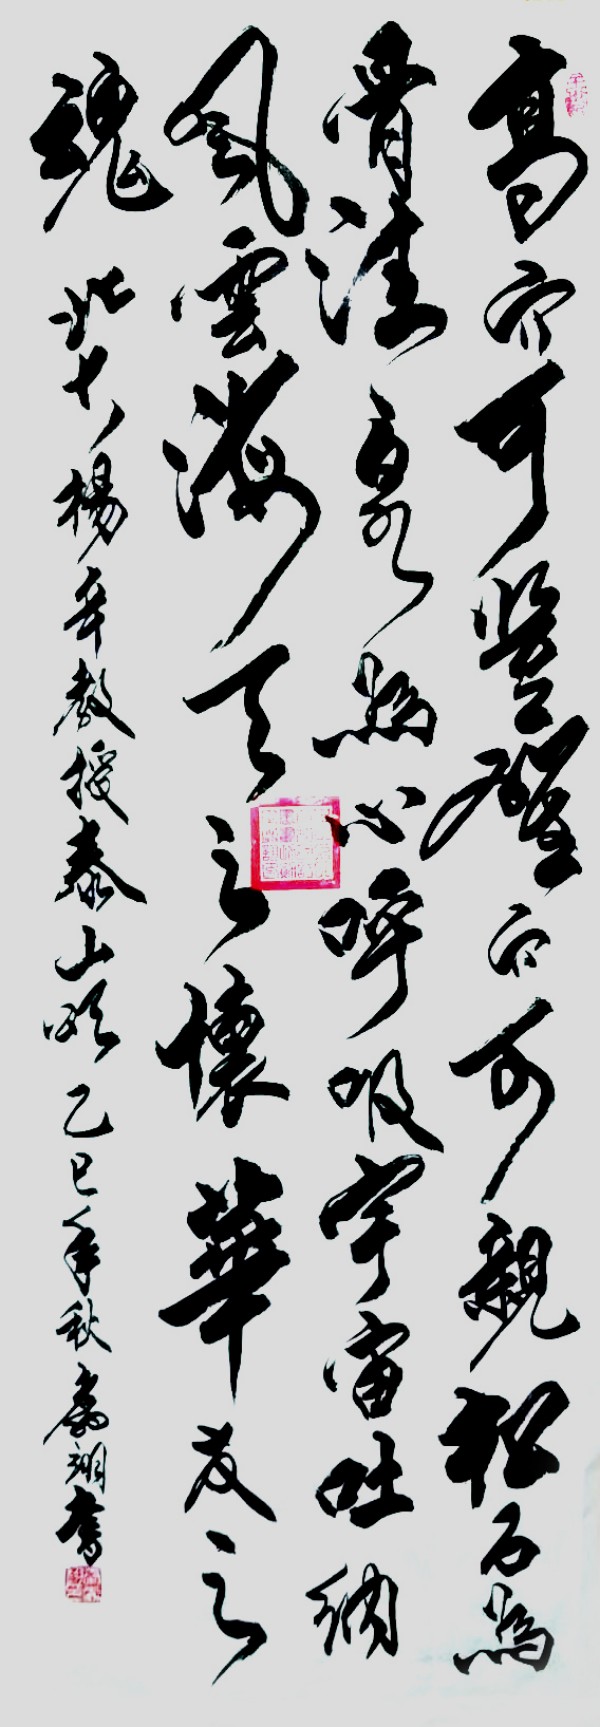 高而可登雄而可親松石為
骨清泉為心呼吸宇宙吐納
風雲海天之懷華夏之
魂 北大楊辛教授泰山頌乙巳年秋